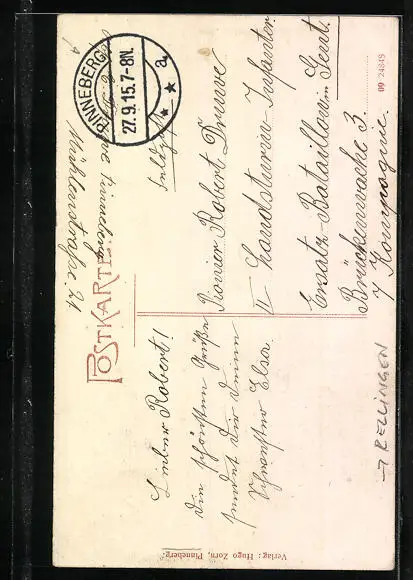 POSTKARTE
PINNEBERG
27.9.15.7-8N.
a
Pinneberg
Mühlenstraße 21
Feldpost
Pionier Robert Druwe
II Landsturm-Infanter
Ersatz-Bataillon Gent.
Brückenwache 3.
7 Kompagnie.
Lieber Robert!
Die schönsten Grüße
sendet dir deine
Schwester Elsa.
→ RELLINGEN
Verlag: Hugo Zorn, Pinneberg.
09 24845